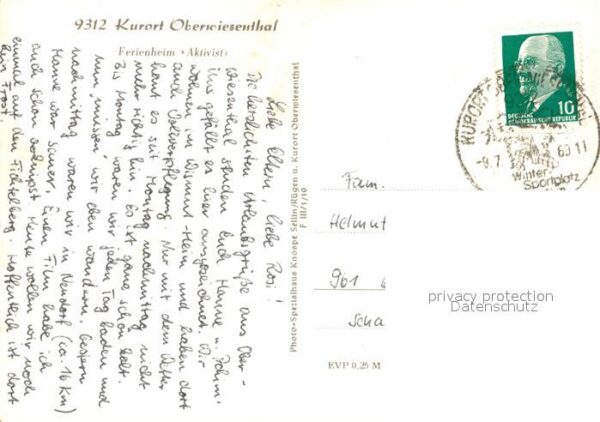 9312 Kurort Oberwiesenthal
Ferienheim »Aktivist«
Liebe Eltern, liebe Rosi!
Die herzlichsten Urlaubsgrüße aus Ober-
wiesenthal senden Euch Hanne u. Achim!
Uns gefällt es hier ausgezeichnet. Wir
wohnen im Wismut-Heim und haben dort
auch Vollverpflegung. Nur mit dem Wetter
haut es seit Montag nachmittag nicht
mehr richtig hin. Es ist ganz schön kalt.
Bis Montag waren wir jeden Tag baden und
nun „müssen" wir eben wandern. Gestern
nachmittag waren wir in Neudorf (ca. 16 km)
Hanne war sauer. Einen Film habe ich
auch schon verknipst. Heute wollen wir noch
einmal auf den Fichtelberg. Hoffentlich ist dort
kein Frost!
Photo-Spezialhaus Knospe Sellin/Rügen u. Kurort Oberwiesenthal
F III/1/10
10
DEUTSCHE
DEMOKRATISCHE REPUBLIK
KURORT OBERWIESENTHAL
-9.7. 69.11
Winter
Sportplatz
Fam.
Helmut
901 6
Scha
privacy protection
Datenschutz
EVP 0,25 M